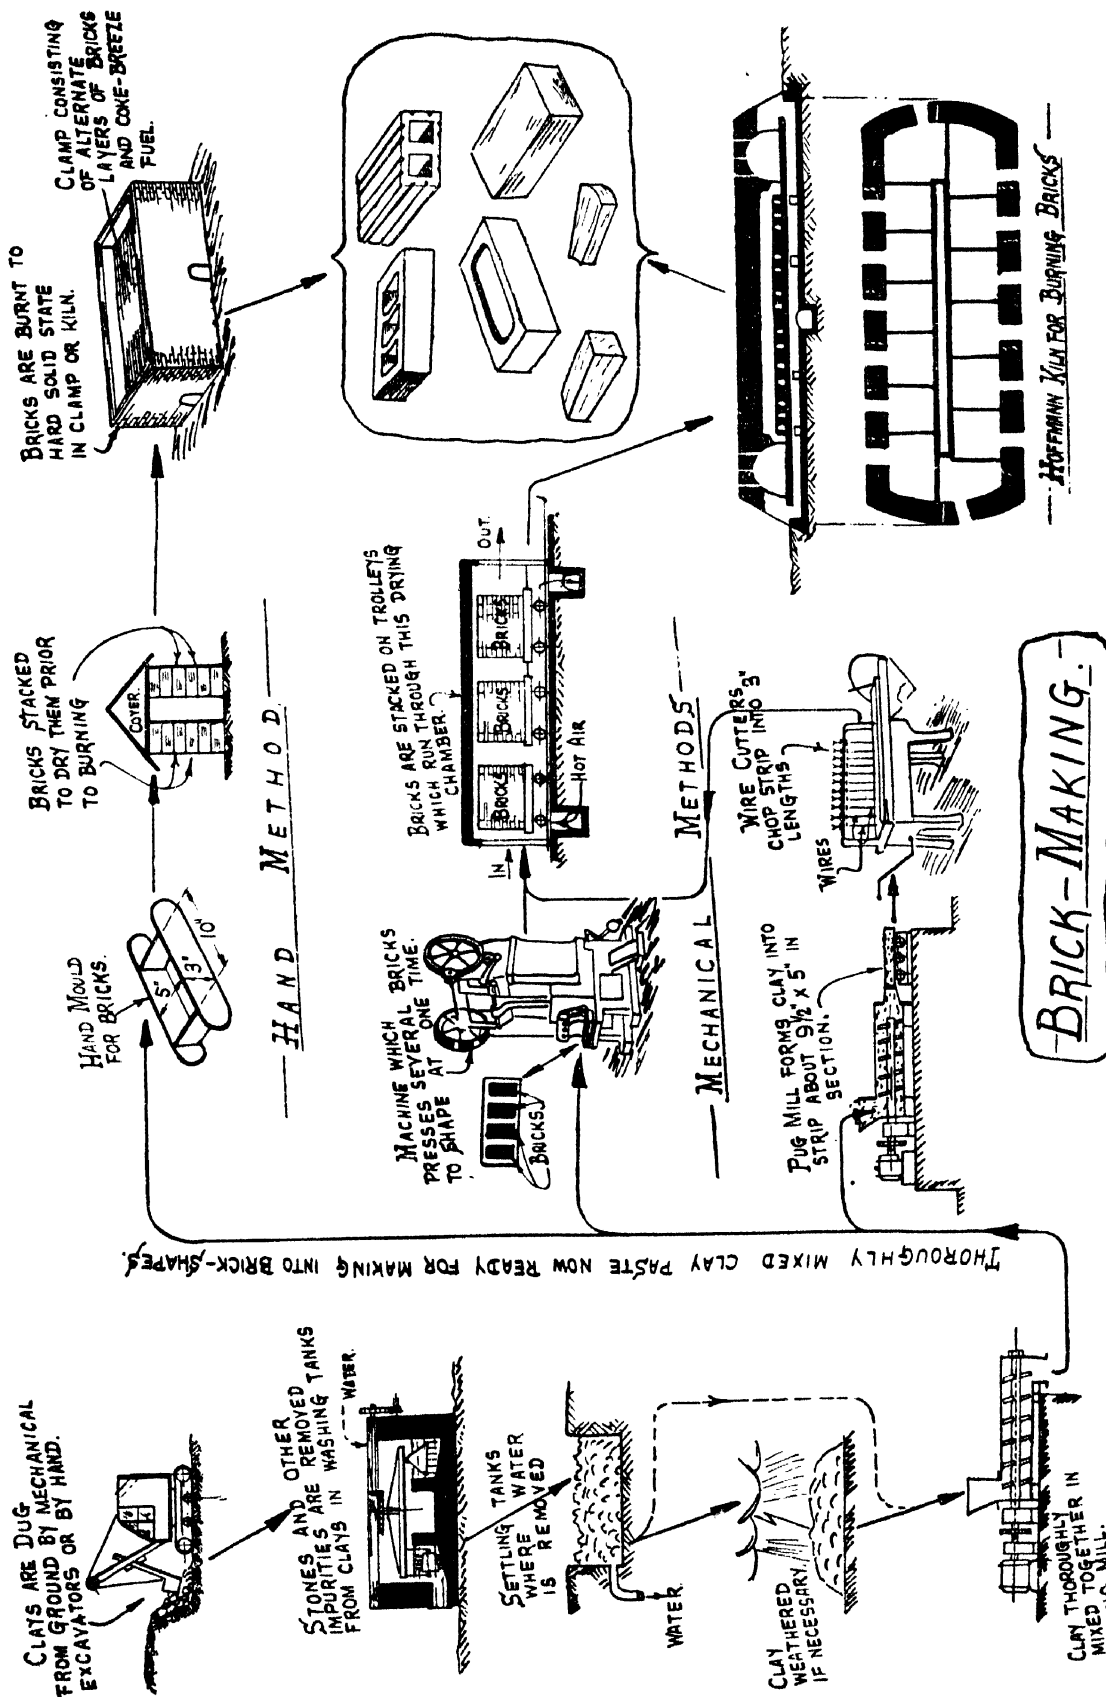 CLAYS ARE DUG
FROM GROUND BY MECHANICAL
EXCAVATORS OR BY HAND.
STONES AND OTHER
IMPURITIES ARE REMOVED
FROM CLAYS IN WASHING TANKS
WATER.
SETTLING TANKS
WHERE WATER
IS REMOVED
WATER.
CLAY
WEATHERED
IF NECESSARY.
CLAY THOROUGHLY
MIXED TOGETHER IN
MILL.
THOROUGHLY MIXED CLAY PASTE NOW READY FOR MAKING INTO BRICK-SHAPES.
HAND MOULD
FOR BRICKS.
5"
3"
10"
BRICKS STACKED
TO DRY THEN PRIOR
TO BURNING
COVER.
BRICKS ARE BURNT TO
HARD SOLID STATE
IN CLAMP OR KILN.
CLAMP CONSISTING
OF ALTERNATE
LAYERS OF BRICKS
AND COKE-BREEZE
FUEL.
HAND METHOD
MACHINE WHICH
PRESSES SEVERAL BRICKS
TO SHAPE AT ONE TIME.
BRICKS.
BRICKS ARE STACKED ON TROLLEYS
WHICH RUN THROUGH THIS DRYING
CHAMBER.
IN
BRICKS
BRICKS
BRICKS
OUT.
HOT AIR
MECHANICAL METHODS
PUG MILL FORMS CLAY INTO
STRIP ABOUT 9½" X 5" IN
SECTION.
WIRE CUTTERS
CHOP STRIP INTO 3"
LENGTHS
WIRES
HOFFMANN KILN FOR BURNING BRICKS
BRICK-MAKING.